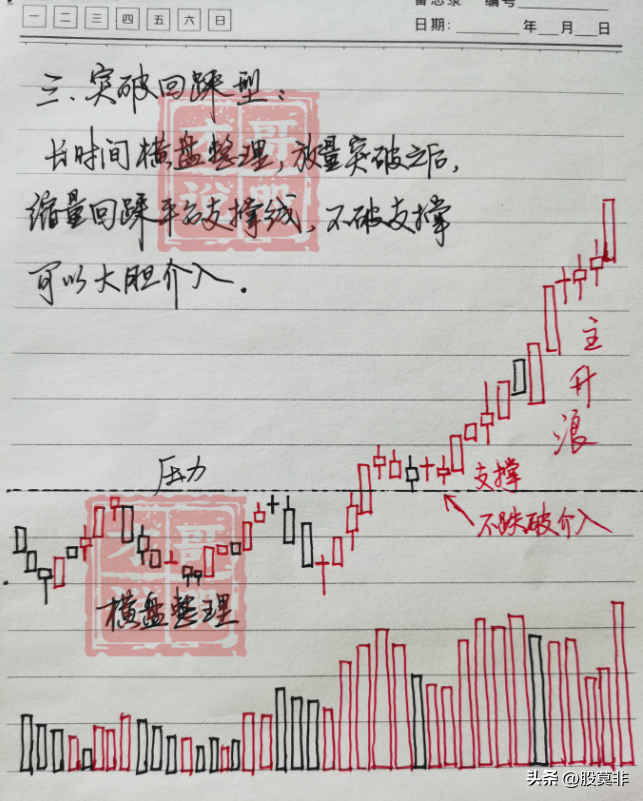 备忘录 编号
一 二 三 四 五 六 日
日期: 年 月 日
三、突破回踩型:
长时间横盘整理,放量突破之后,
缩量回踩平台支撑线,不破支撑
可以大胆介入.
主升浪
压力
支撑
不跌破介入
横盘整理
头条 @股莫非